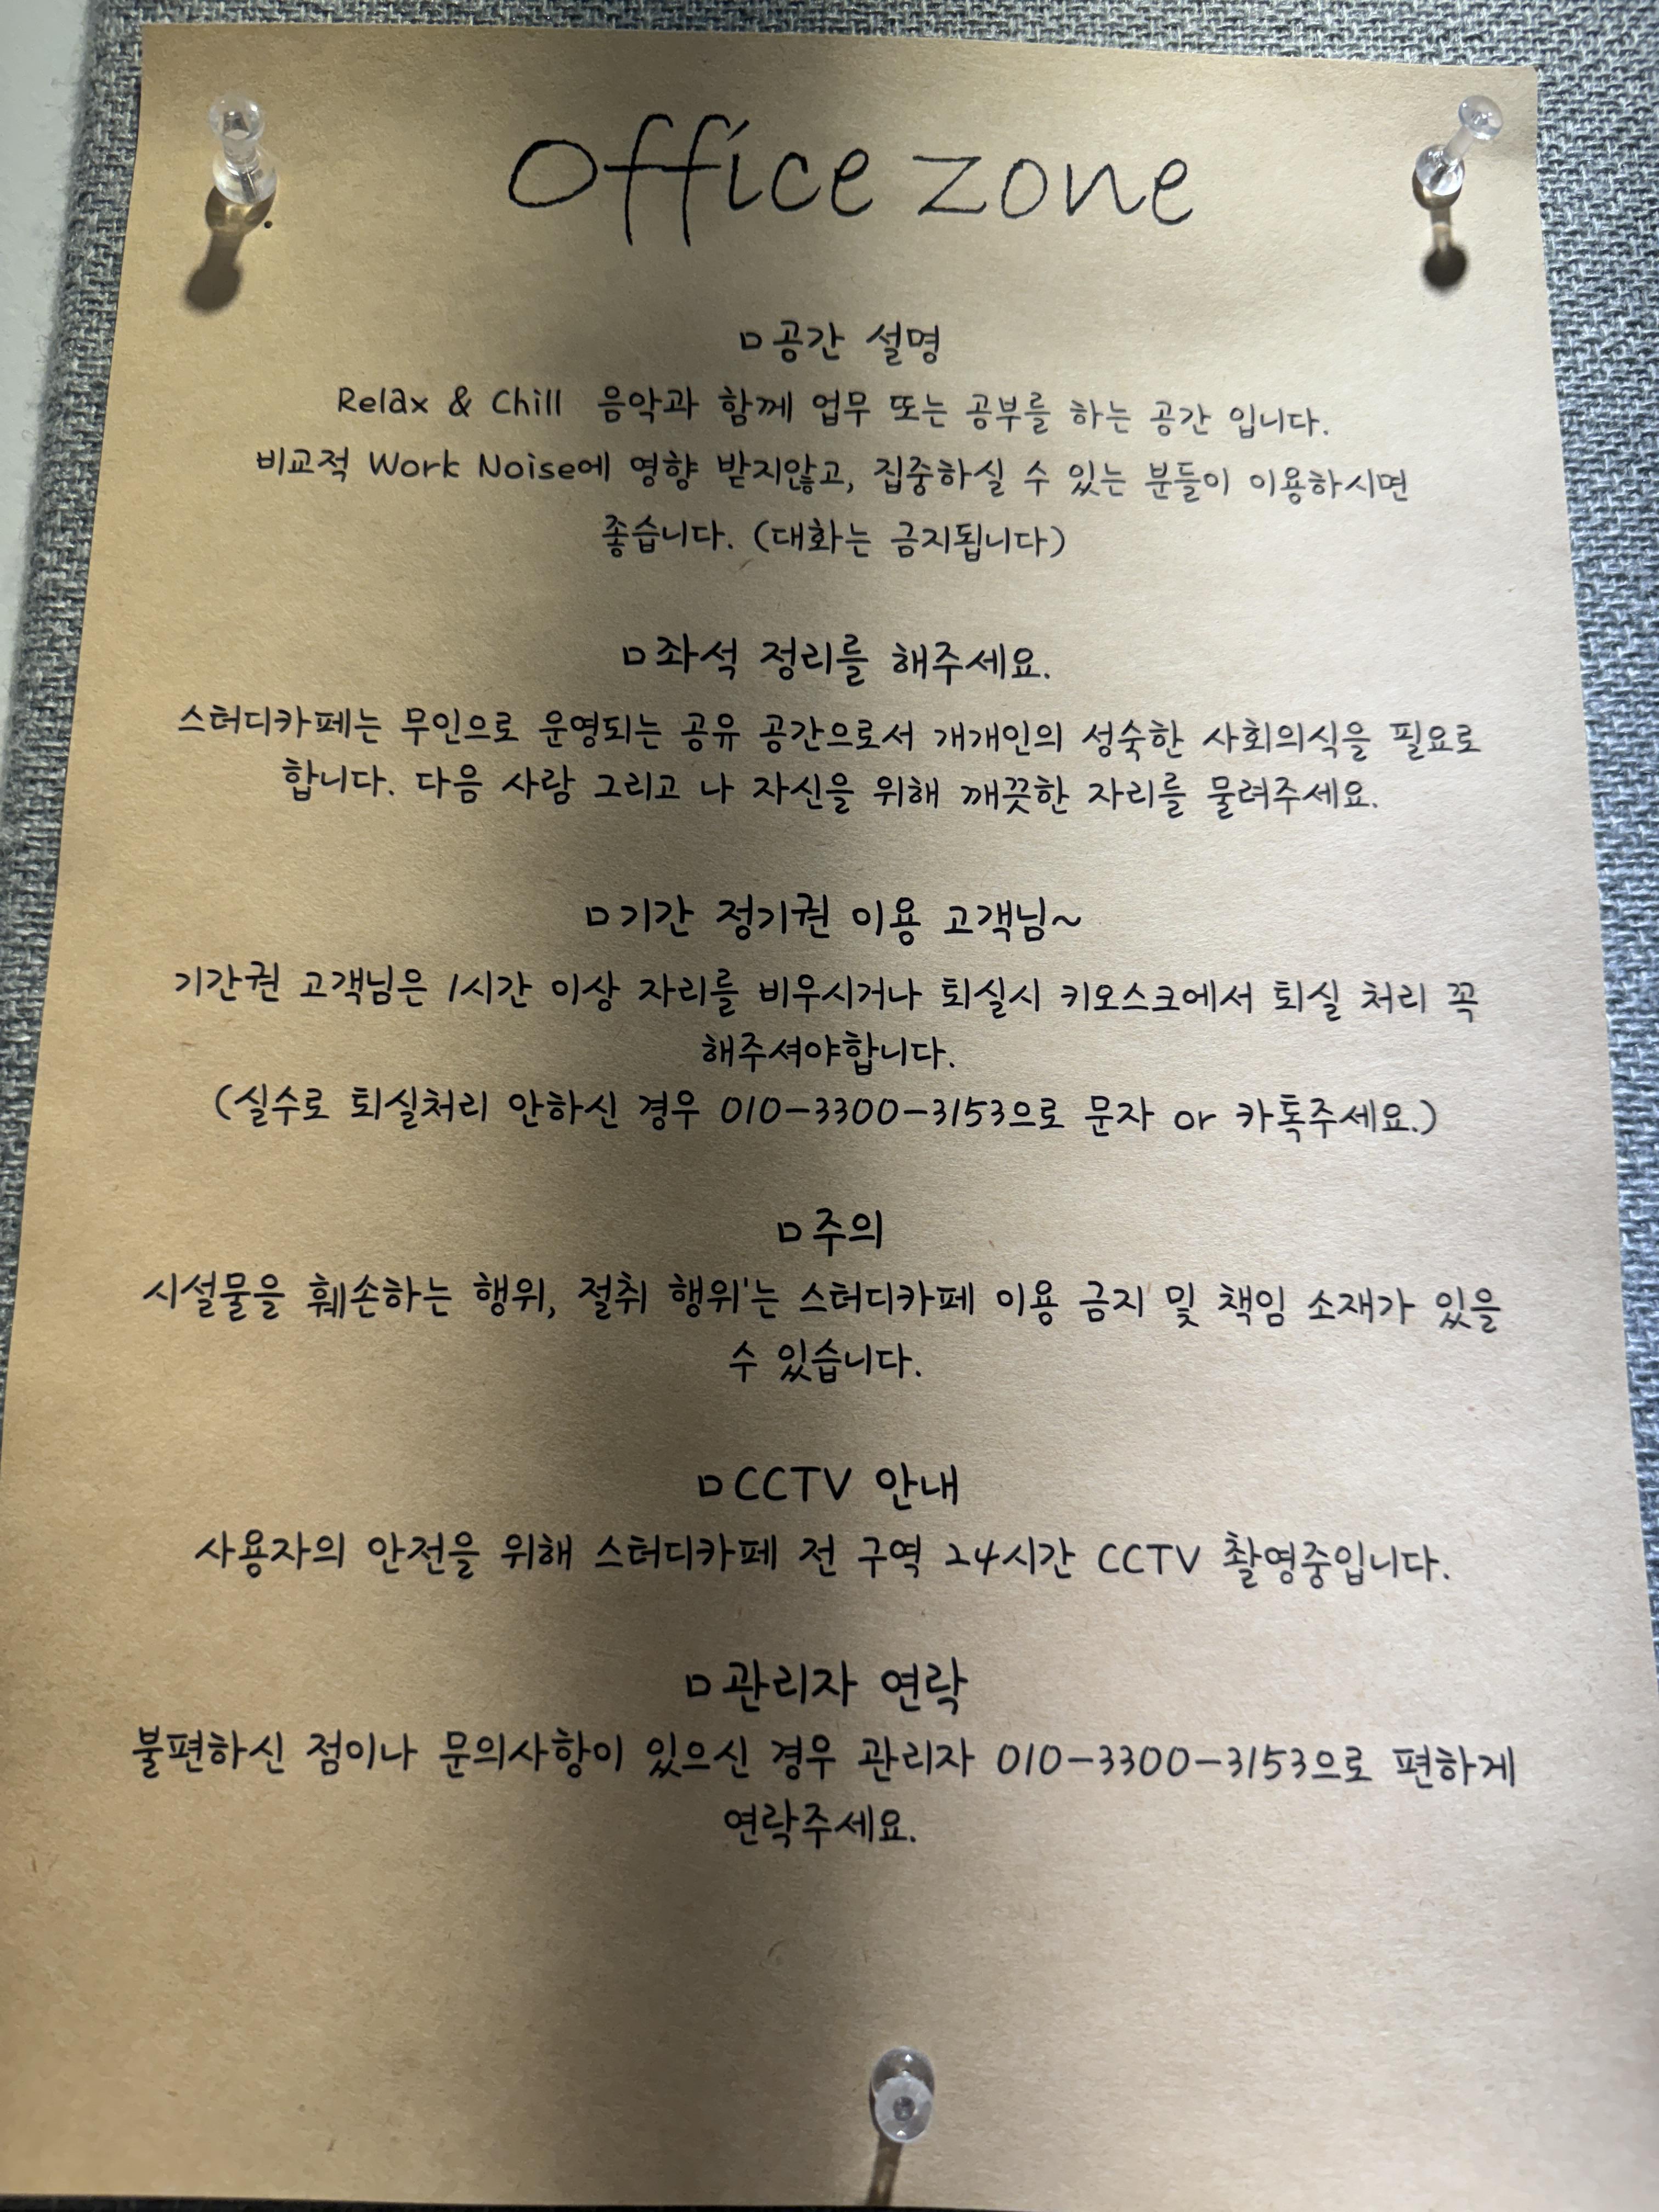 office zone
ㅁ공간 설명
Relax & Chill 음악과 함께 업무 또는 공부를 하는 공간 입니다.
비교적 Work Noise에 영향 받지않고, 집중하실 수 있는 분들이 이용하시면
좋습니다. (대화는 금지됩니다)
ㅁ좌석 정리를 해주세요.
스터디카페는 무인으로 운영되는 공유 공간으로서 개개인의 성숙한 사회의식을 필요로
합니다. 다음 사람 그리고 나 자신을 위해 깨끗한 자리를 물려주세요.
ㅁ기간 정기권 이용 고객님~
기간권 고객님은 1시간 이상 자리를 비우시거나 퇴실시 키오스크에서 퇴실 처리 꼭
해주셔야합니다.
(실수로 퇴실처리 안하신 경우 010-3300-3153으로 문자 or 카톡주세요.)
ㅁ주의
시설물을 훼손하는 행위, 절취 행위'는 스터디카페 이용 금지 및 책임 소재가 있을
수 있습니다.
ㅁCCTV 안내
사용자의 안전을 위해 스터디카페 전 구역 24시간 CCTV 촬영중입니다.
ㅁ관리자 연락
불편하신 점이나 문의사항이 있으신 경우 관리자 010-3300-3153으로 편하게
연락주세요.